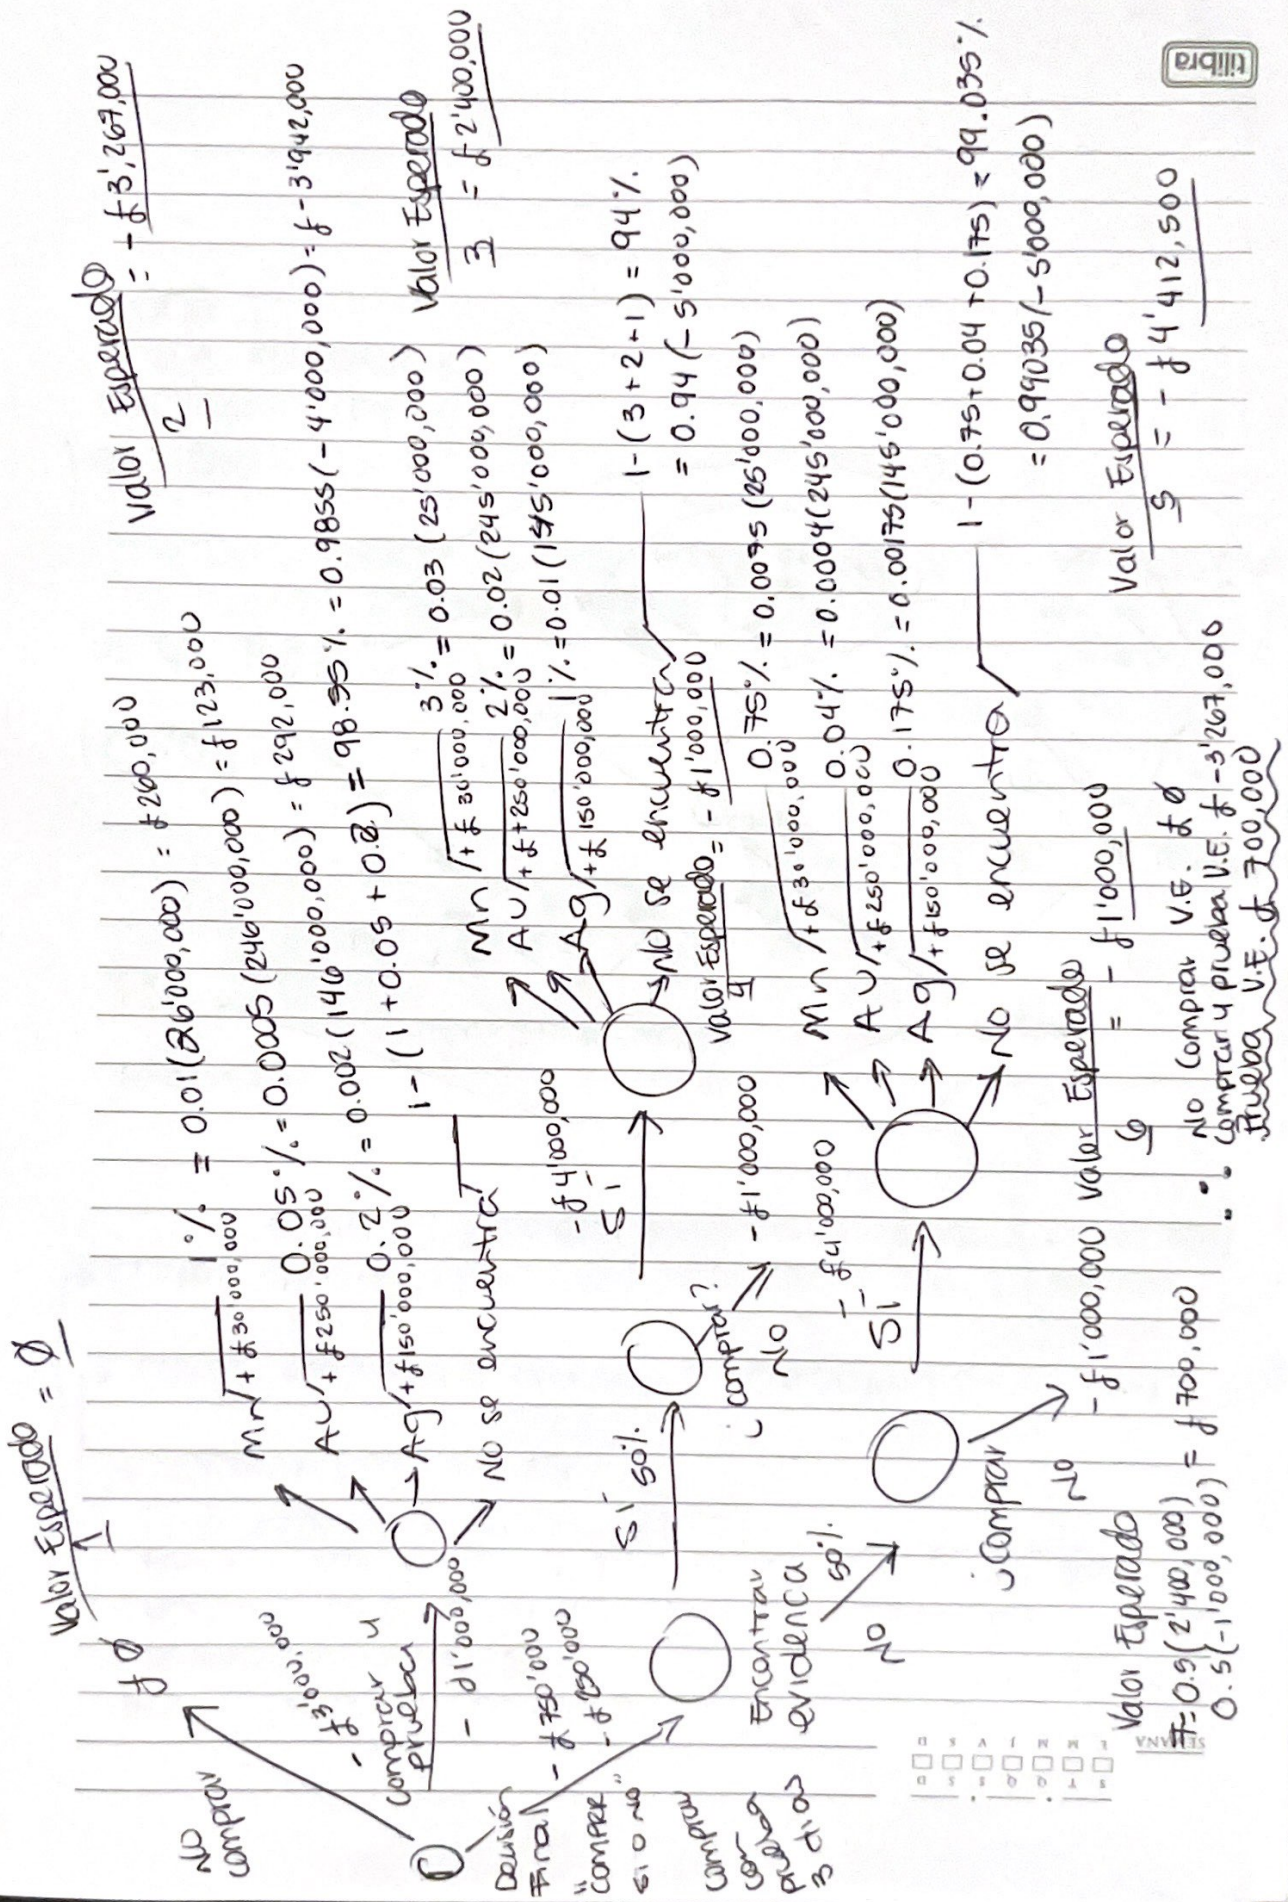 Valor Esperado = Ø
1
£ Ø
No
comprar
- £3'000,000
comprar y
prueba
- £1'000,000
Mn/+ £30'000,000
1% = 0.01(26'000,000) = £260,000
Au/+ £250'000,000
0.05% = 0.0005(246'000,000) = £123,000
Ag/+£150'000,000
0.2% = 0.002(146'000,000) = £292,000
No se encuentra
1-(1+0.05+0.2) = 98.55% = 0.9855(-4'000,000) = £-3'942,000
Valor Esperado = -£3',267,000
2
Decisión
Final
"COMPRAR"
SI O NO
comprar
con
prueba
3 días
- £750'000
- £250'000
Encontrar
evidencia
SÍ
50%
¿comprar?
No
- £1'000,000
- £4'000,000
SÍ
Mn/+£30'000,000
3% = 0.03(25'000,000)
Au/+£+250'000,000
2% = 0.02(245'000,000)
Ag/+£150'000,000
1% = 0.01(145'000,000)
No se encuentra
1-(3+2+1) = 94%
= 0.94(-5'000,000)
Valor Esperado
3 = £2'400,000
Valor Esperado = - £1'000,000
4
No
50%
¿Comprar
No
- £1'000,000
SÍ
- £4'000,000
Mn/+£30'000,000
0.75% = 0.0075(25'000,000)
Au/+£250'000,000
0.04% = 0.0004(245'000,000)
Ag/+£150'000,000
0.175% = 0.00175(145'000,000)
No se encuentra
1-(0.75+0.04+0.175) = 99.035%
= 0.99035(-5'000,000)
Valor Esperado
5 = - £4'412,500
Valor Esperado
6 = - £1'000,000
Valor Esperado
7= 0.5(2'400,000)
0.5(-1'000,000) = £700,000
∴ No comprar V.E. £Ø
Comprar y prueba V.E. £-3'267,000
Prueba V.E. £ 700,000
SEMANA
L M M J V S D
S T Q Q S S D
tilibra